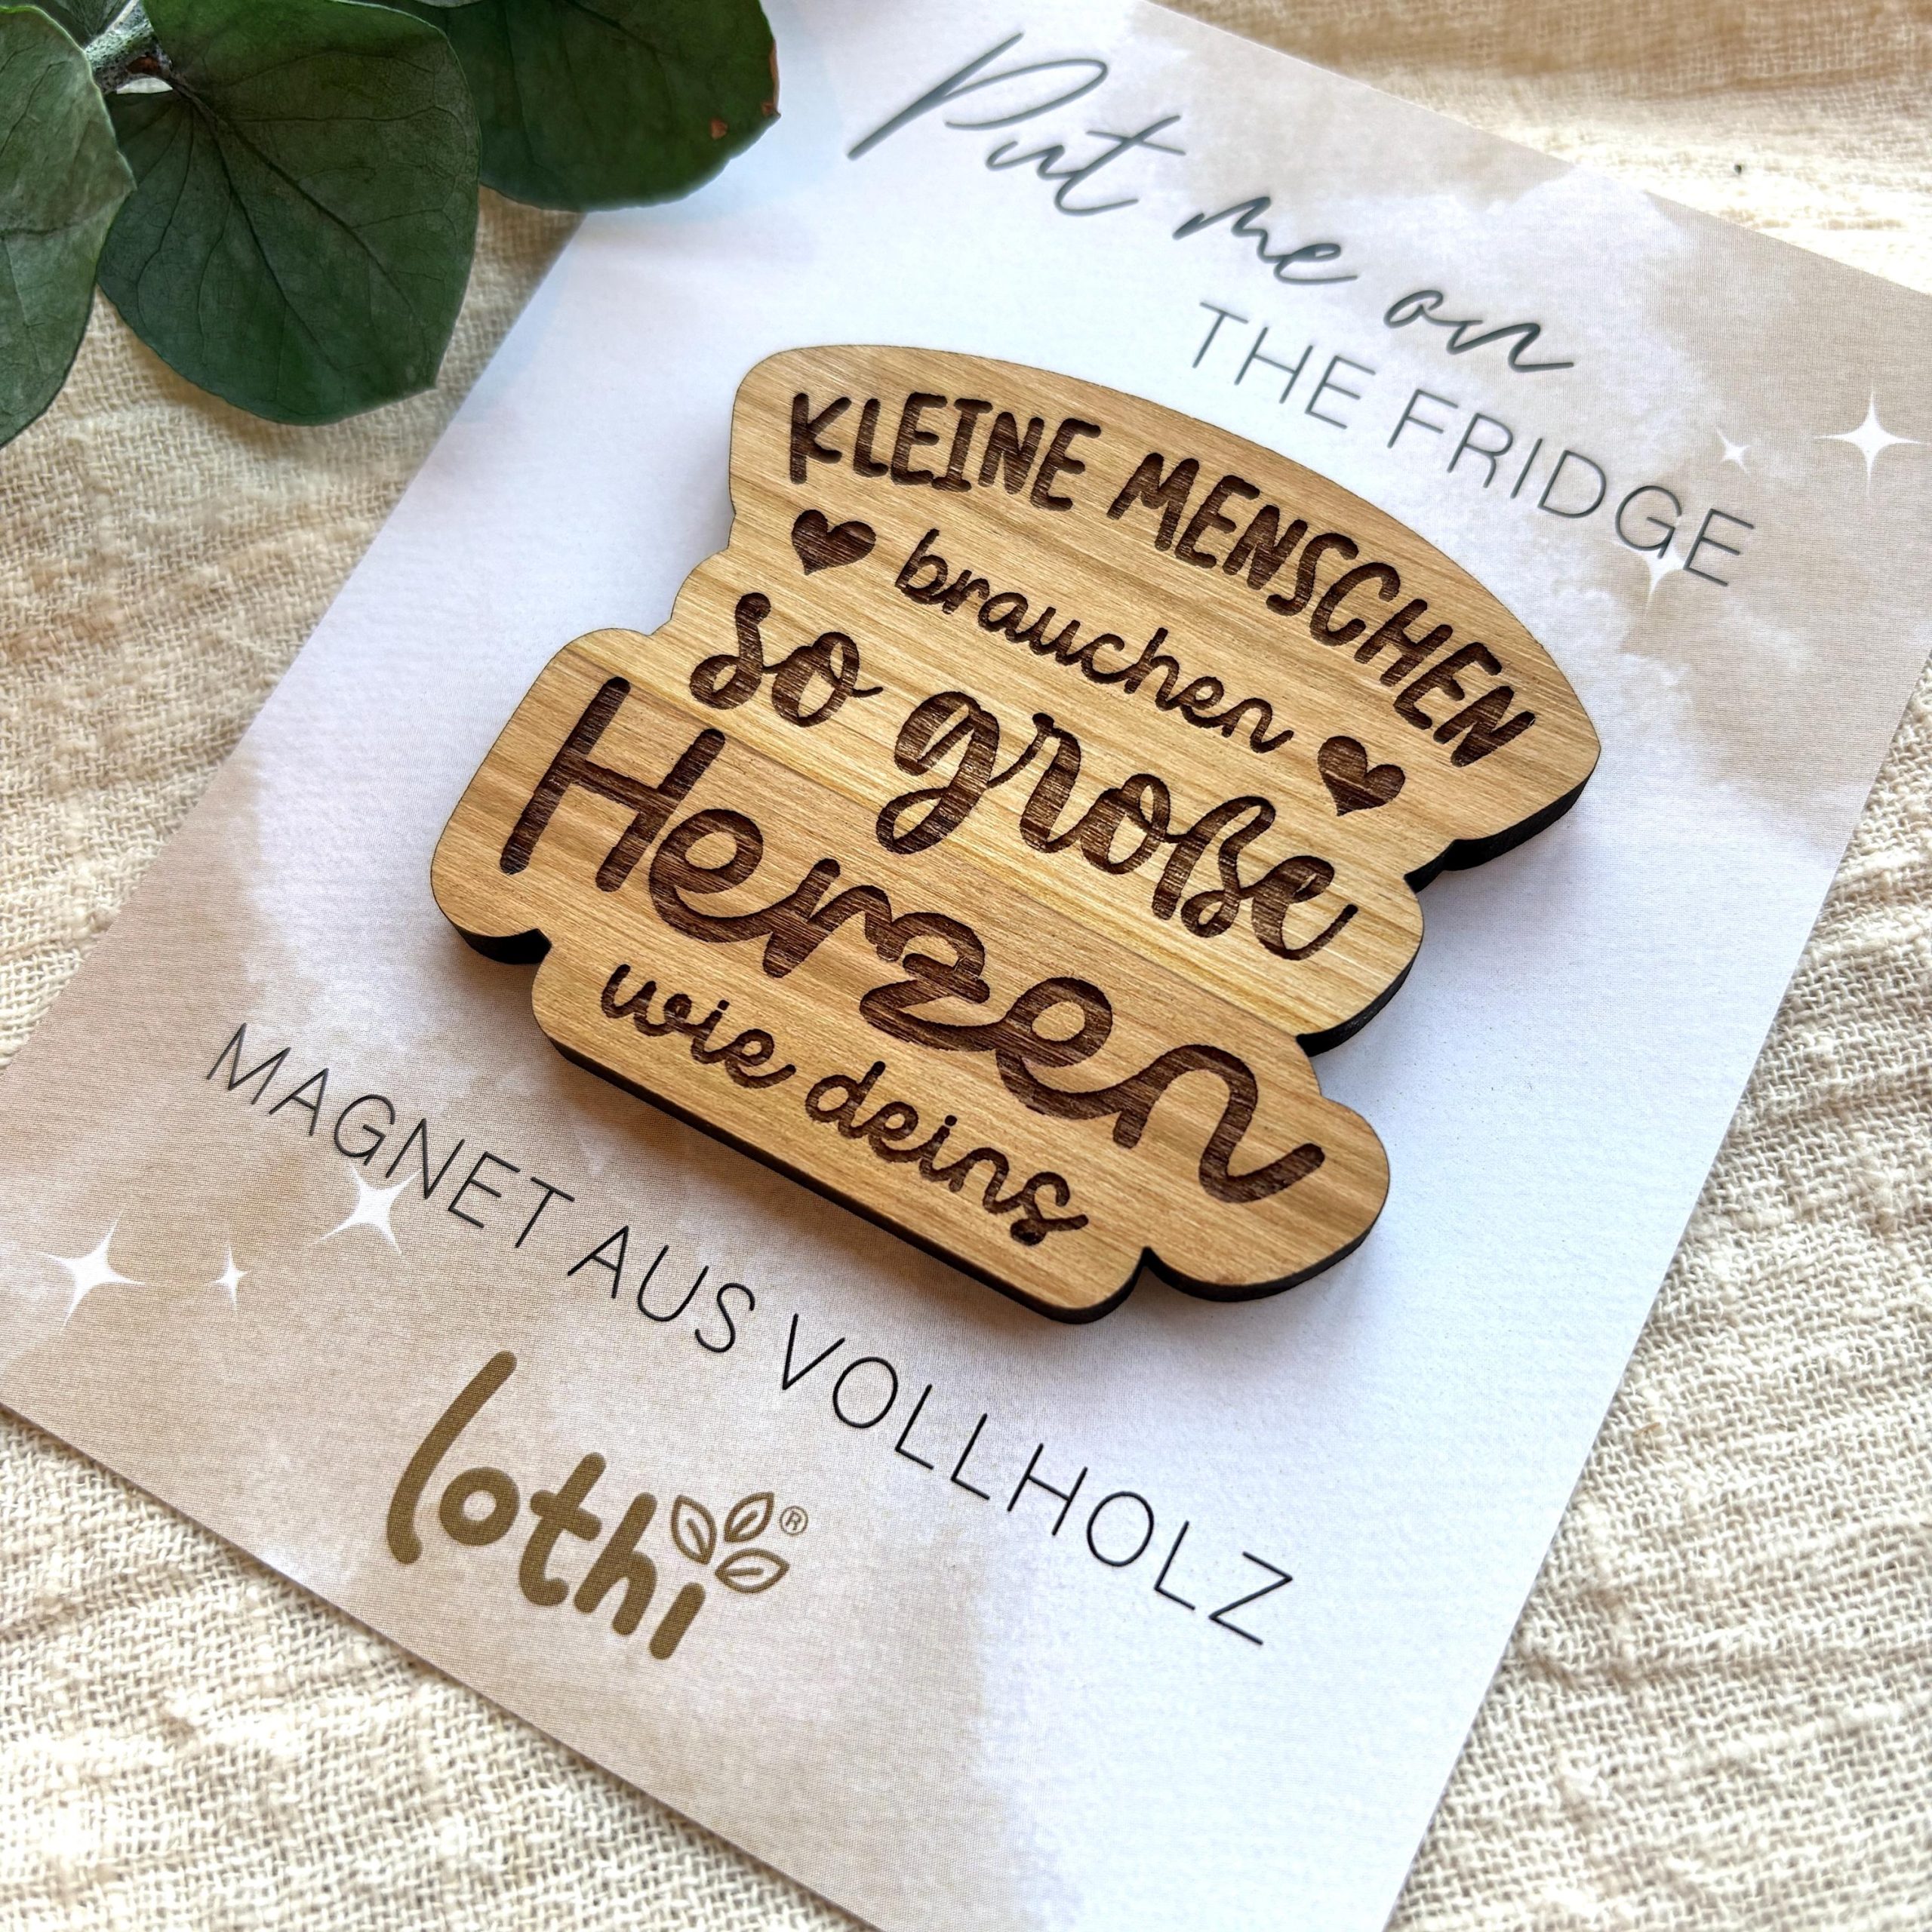 Put me on
THE FRIDGE
KLEINE MENSCHEN
brauchen
so große
Herzen
wie deins
MAGNET AUS VOLLHOLZ
lothi®